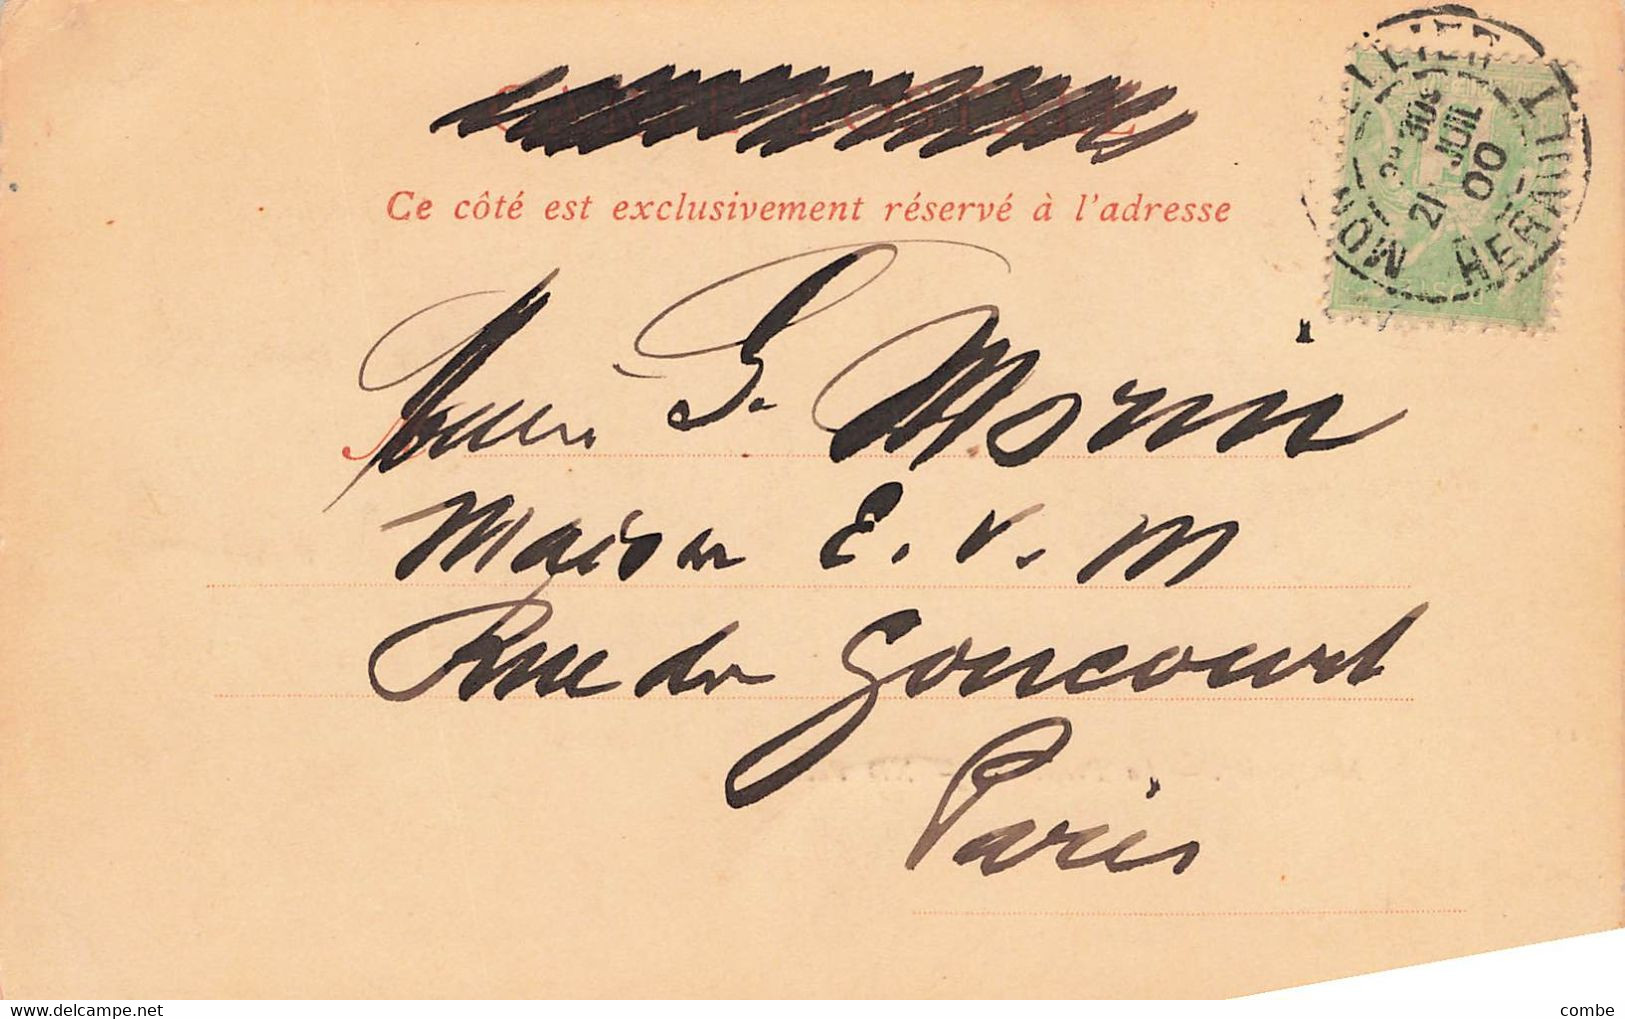 CARTE POSTALE
Ce côté est exclusivement réservé à l'adresse
G. Morin
Maison E. V. M
Rue de Goncourt
Paris
MONTPELLIER
21 JUIL 00
HERAULT
delcampe.net
combe